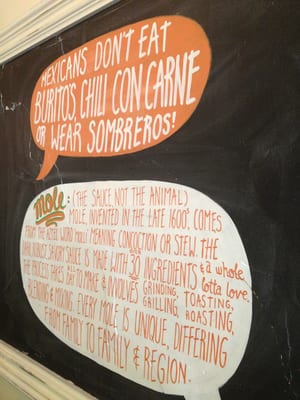 MEXICANS DON'T EAT
BURITO'S, CHILI CON CARNE
OR WEAR SOMBREROS!
Mole: (THE SAUCE, NOT THE ANIMAL)
MOLE, INVENTED IN THE LATE 1600S, COMES
FROM THE AZTEC WORD MOLLI MEANING CONCOCTION OR STEW. THE
ROBUST, SAVORY SAUCE IS MADE WITH OVER 30 INGREDIENTS & a whole
THE PROCESS TAKES TO MAKE & INVOLVES GRINDING, TOASTING, lotta love.
BLENDING & MIXING. EVERY MOLE IS UNIQUE, DIFFERING GRILLING, ROASTING,
FROM FAMILY TO FAMILY & REGION.